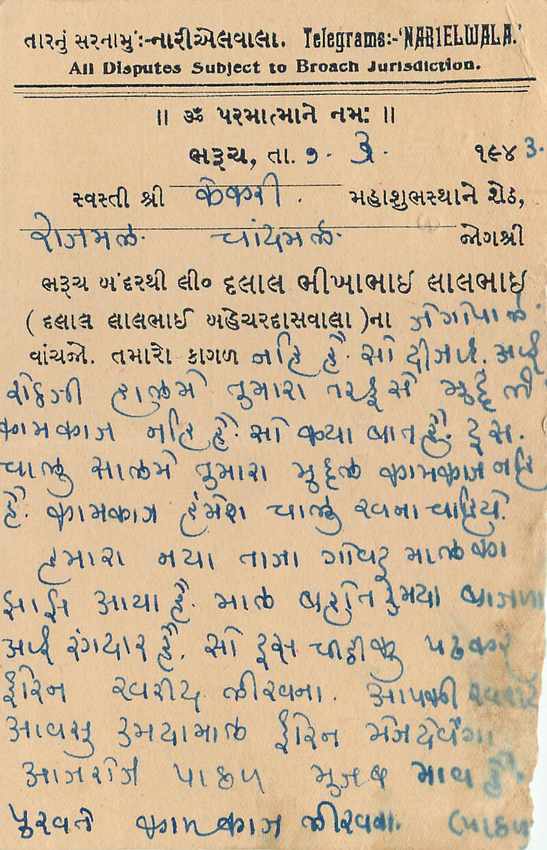 તારનું સરનામુ:-નારીએલવાલા. Telegrams:-'NARIELWALA.'
All Disputes Subject to Broach Jurisdiction.
॥ ॐ પરમાત્માને નમઃ ॥
ભરૂચ, તા. ૭ - ૩ - ૧૯૪૩.
સ્વસ્તી શ્રી કેકરી . મહાશુભસ્થાને શેઠ,
રોજમલ. ચાંદમલ. જોગશ્રી
ભરૂચ બંદરથી લી૦ દલાલ ભીખાભાઈ લાલભાઈ
( દલાલ લાલભાઈ બહેચરદાસવાલા )ના જેગોપાલ.
વાંચજો. તમારો કાગળ નહિ હે. સો દીજીએ.
શેઠજી હાલમે તુમારા તરફ સે મુદ્દલ
કામકાજ નહિ હૈ. સો ક્યા બાત હૈ. ઈસ.
ચાલુ સાલમે તુમારા મુદ્દલ કામકાજ નહિ
હૈ. કામકાજ હંમેશ ચાલુ રખના ચાહિયે.
હમારા નયા તાજા ગોવટ માલ કા
આયા હૈ. માલ બહુત
રંગદાર હૈ. સો ઈસ ચીઠ્ઠીકુ પઢકર
ખરીદ લીખના. આપકી
આજરોજ પાછળ મુજબ ભાવ હૈ.
કામકાજ લીખના.